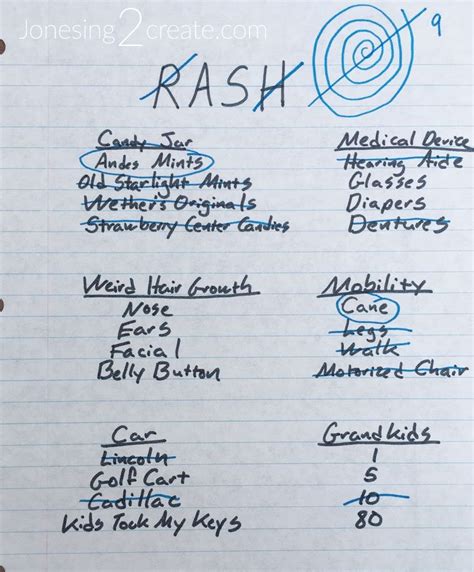 Jonesing2create.com
9
RASH
Candy Jar
Andes Mints
Old Starlight Mints
Wether's Originals
Strawberry Center Candies
Medical Device
Hearing Aide
Glasses
Diapers
Dentures
Weird Hair Growth
Nose
Ears
Facial
Belly Button
Mobility
Cane
Legs
Walk
Motorized Chair
Car
Lincoln
Golf Cart
Cadillac
Kids Took My Keys
Grandkids
1
5
10
80